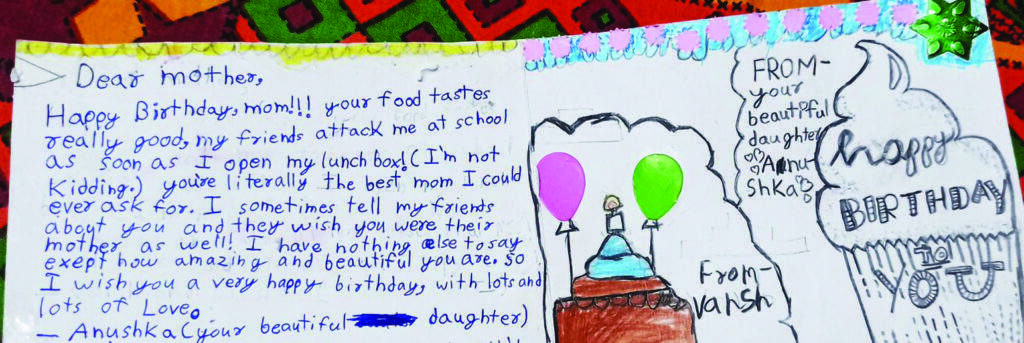 Dear mother,
Happy Birthday, mom!!! your food tastes
really good, my friends attack me at school
as soon as I open my lunch box! (I'm not
Kidding.) you're literally the best mom I could
ever ask for. I sometimes tell my friends
about you and they wish you were their
mother as well! I have nothing else to say
exept how amazing and beautiful you are. so
I wish you a very happy birthday, with lots and
lots of Love.
— Anushka (your beautiful daughter)
From-
vansh
FROM-
your
beautiful
daughter
Anu-
shka
happy
BIRTHDAY
TO
YOU